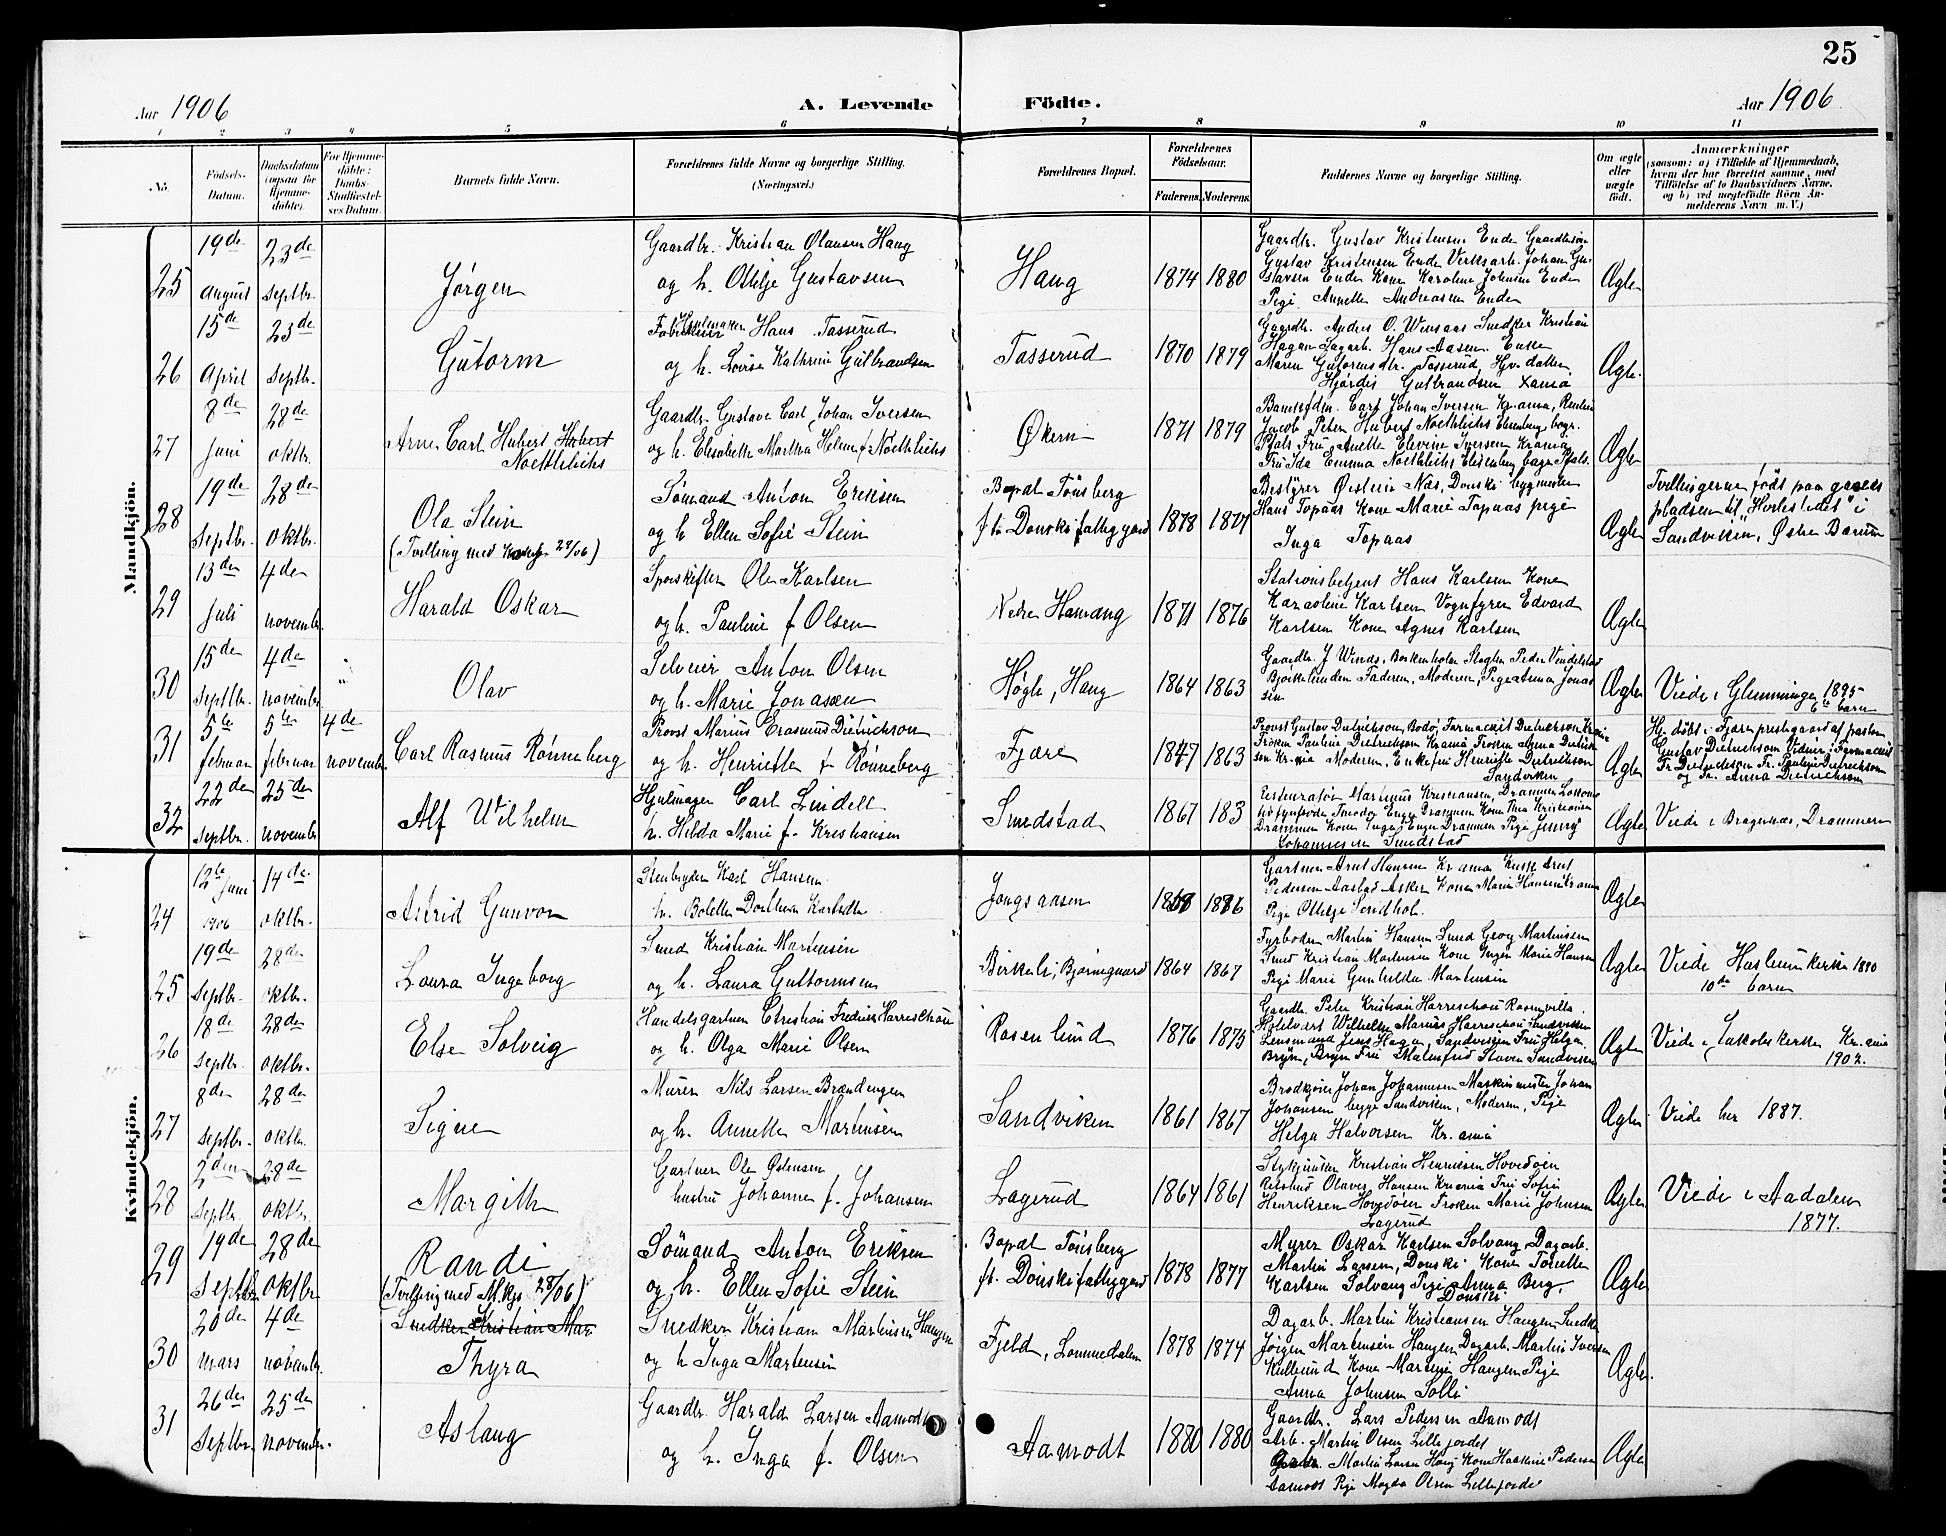 25
Aar 1906
A. Levende Födte.
Aar 1906.
1 2 3 4 5 6 7 8 9 10 11
No.
Födsels-Datum.
Daabsdatum (ogsaa for Hjemme-döbte).
For Hjemme-döbte: Daabs-Stadfæstel-ses Datum.
Barnets fulde Navn.
Forældrenes fulde Navne og borgerlige Stilling. (Næringsvei.)
Forældrenes Bopæl.
Forældrenes Födselsaar.
Faderens. Moderens.
Faddernes Navne og borgerlige Stilling.
Om ægte eller uægte födt.
Anmærkninger
(saasom: a) i Tilfælde af Hjemmedaab, hvem der har forrettet samme, med Tilföielse af to Daabsvidners Navne, og b) ved uægtefödte Börn An-melderens Navn m. V.)
Mandkjön.
25
19de August
23de Septbr.
Jørgen
Gaardbr. Kristian Olausen Haug
og h. Ottilje Gustavsen
Haug
1874 1880
Gaardbr. Gustav Kristensen Ende Gaardbrsøn
Gustav Kristensen Ende Verksarb. Johan Gu-
stavsen Ende Kone Karoline Johnsen Ende
Pige Annette Andreasen Ende
Ægte
26
15de April
23de Septbr.
Gutorm
Hans Tasserud
og h. Lovise Kathrine Gulbrandsen
Tasserud
1870 1879
Gaardbr. Andres O. Wensaas Snedker Kristian
Hagan Lagarb. Hans Aasen Enke
Maren Gutormsdtr. Tasserud, Hv.datter
Hjørdis Gulbrandsen Xania
Ægte.
27
8de Juni
28de oktbr.
Arne Carl Hubert Hubert
Noethlichs
Gaardbr. Gustave Carl Johan Iversen
og h. Elisabeth Martha Helene f. Noethlichs
Økern
1871 1879
Carl Johan Iversen Kr.ania, Rentier
Jacob Peter Hubert Noethlichs
Pfalz Frü Anette Elvine Iversen Krania
Frü Ida Emma Noethlichs
Ægte
28
19de Septbr.
28de oktbr.
Ola Stein
(Tvilling med 29/06)
Sømand Anton Eriksen
og h. Ellen Sofie Stein
Bopæl Tønsberg
ft. Dønski fattiggaard
1878 1877
Bestyrer Øistein Næs, Dønski bygmester
Hans Topaas Kone Marie Topaas pige
Inga Topaas
Ægte
Tvillingerne født paa
pladsen til "Hvilestedet" i
Sandviken, Østre Bærum
29
13de Juli
4de novembr.
Harald Oskar
Sporskifter Ole Karlsen
og h. Pauline f. Olsen
Nedre Hamang
1871 1876
Stationsbetjent Hans Karlsen Kone
Karoline Karlsen Vognfyrer Edvard
Karlsen Kone Agnes Karlsen
Ægte
30
15de Septbr.
4de novembr.
"
Olav
Selveier Anton Olsen
og h. Marie Jonasen
Høgli, Haug
1864 1863
Bjørkelunden Faderen, Moderen, Pige Anna Jonas-
sen
Ægte
Viede i Glemminge 1895
6te barn
31
5te februar
5te februar
4de novembr.
Carl Rasmus Rønneberg
Provst Marius Erasmus Dietrichson
og h. Henriette f. Rønneberg
Fjære
1847 1863
Provst Gustav Dietrichson, Bodø, Farmaceut Dietrichson Krania
Frøken Pauline Dietrichson Kr.ania Frøken Anna Dietrich-
son Kr.ania Moderen, Enkefru Henriette Dietrichson
Sandviken
Ægte
Hj. døbt i Fjære prestegaard af pastor
Gustav Dietrichson Vidner: Farmaceut
Fr. Dietrichson Fr. Pauline Dietrichson
og Fr. Anna Dietrichson
32
22de Septbr.
25de novembr.
Alf Wilhelm
Hjulmager Carl Lindell
h. Hilda Marie f. Kristiansen
Smedstad
1867 183
Restauratør Marinius Kristiansen, Drammen Lokomo-
tivfyrbøder Theodor Enger Drammen Kone Thea Kristiansen
Drammen Kone Inga Enger Drammen Pige Jenny
Johannesen Smedstad
Ægte
Viede i Bragernæs, Drammen
Kvindekjön.
24
12te Juni
1906
14de oktbr.
Astrid Gunvor
Stenbryder Karl Hansen
h. Bolette Dorthea
Jongsaasen
1886
Gartner Arnt Hansen Kr.ania
Pedersen Aastad Asker Kone Marie Hansen Kr.ania
Pige Ottilje
Ægte
25
19de Septbr.
28de oktbr.
Laura Ingeborg
Smed Kristian Martinsen
og h. Laura Guttormsen
Birkeli, Bjørnegaard
1864 1867
Fyrbøder Martin Hansen Smed Georg Martinsen
Smed Kristian Martinsen Kone Inger Marie Hansen
Pige Marie Gunhilda Martinsen
Ægte
Viede Haslum kirke 1890
10de barn
26
18de Septbr.
28de oktbr.
Else Solveig
Handelsgartner Christian Fredrik Harreschou
og h. Olga Marie Olsen
Rosenlund
1876 1875
Gaardbr. Peter Kristian Harreschou Rosenvilla
Hotelvert Wilhelm Marius Harreschou Sandviken
Lensmand Jens Hagen, Sandviken Frü Helga
Bryn, Bryn Frü Malmfrid Staver Sandviken
Ægte
Viede i Jakobskirke Kr.ania
1902.
27
8de Septbr.
28de oktbr.
Signe
Murer Nils Larsen Brændengen
og h. Annette Martinsen
Sandviken
1861 1867
Brodkjører Johan Johannesen Maskinmester Johan
Johansen begge Sandviken, Moderen, Pige
Helga Halvorsen Kr.ania
Ægte
Viede her 1887.
28
2den Septbr.
28de oktbr.
Margith
Gartner Ole Østensen
hustru Johanne f. Johansen
Lagerud
1864 1861
Kristian Henriksen Hovedøen
Olaves Hansen Kr.ania Frü Sofie
Henriksen Hovedøen Frøken Marie Johnsen
Lagerud
Ægte
Viede i Aadalen
1877.
29
19de Septbr.
28de oktbr.
Randi
(Tvilling med M.kjs 28/06)
Sømand Anton Eriksen
og h. Ellen Sofie Stein
Bopæl Tønsberg
ft. Dønski fattiggaard
1878 1877
Murer Oskar Karlsen Solvang Dagarb.
Martin Larsen, Dønski Kone Tolette
Karlsen Solvang Pige Anna Berg,
Dønski
Ægte
30
20de mars
4de novembr.
Snedker Kristian Mar
Thyra
Snedker Kristian Martinsen Haugen
og h. Inga Martinsen
Fjeld, Lommedalen
1878 1874
Dagarb. Martin Kristiansen Haugen Snedker
Jørgen Martinsen Haugen Dagarb. Martin Iversen
Kullerud Kone Martine Haugen Pige
Anna Johnsen Solli
Ægte.
31
26de Septbr.
25de novembr.
Aslaug
Gaardbr. Harald Larsen Aamodt
og h. Inga f. Olsen
Aamodt
1880 1880
Gaardbr. Lars Pedersen Aamodt
Arb. Martin Olsen Lillejordet
Martin Larsen Haug Kone Pedersen
Aamodt Pige Magda Olsen Lillejorde
Ægte